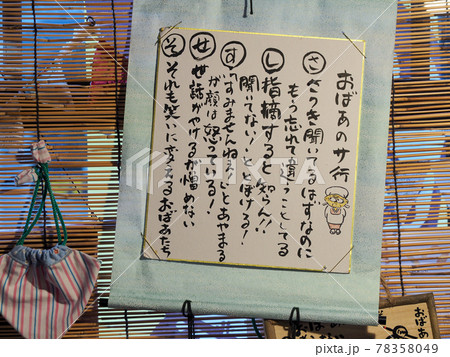 おばあのサ行
さ さっき聞いてるはずなのに
もう忘れて違うことしてる
し 指摘すると「知らん!!
聞いてない!」ととぼける!
す 「すみませんねぇ」とあやまる
が顔は怒ってる!
せ 世話がやけるが憎めない
そ それも笑いに変えるおばあたち
おばあ
PIXTA
pixta.jp - 78358049